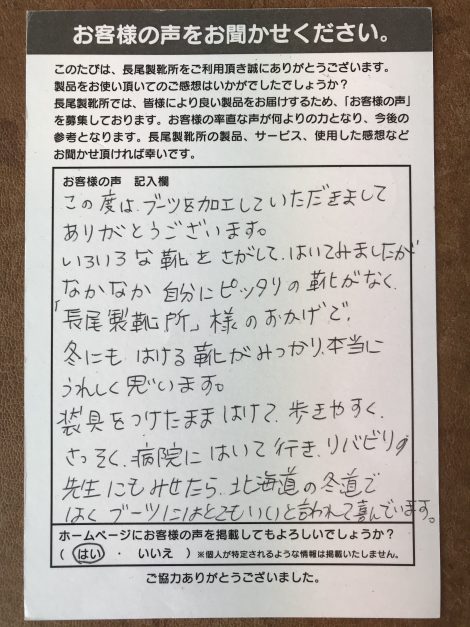 お客様の声をお聞かせください。
このたびは、長尾製靴所をご利用頂き誠にありがとうございます。
製品をお使い頂いてのご感想はいかがでしたでしょうか?
長尾製靴所では、皆様により良い製品をお届けするため、「お客様の声」
を募集しております。お客様の率直な声が何よりの力となり、今後の
参考となります。長尾製靴所の製品、サービス、使用した感想など
お聞かせ頂ければ幸いです。
お客様の声 記入欄
この度は、ブーツを加工していただきまして
ありがとうございます。
いろいろな靴をさがして、はいてみましたが
なかなか自分にピッタリの靴がなく、
「長尾製靴所」様のおかげで、
冬にもはける靴がみつかり、本当に
うれしく思います。
装具をつけたままはけて、歩きやすく、
さっそく、病院にはいて行き、リハビリの
先生にもみせたら、北海道の冬道で
はくブーツにはとてもいいと言われて喜んでいます。
ホームページにお客様の声を掲載してもよろしいでしょうか?
( はい ・ いいえ ) ※個人が特定されるような情報は掲載いたしません。
ご協力ありがとうございました。